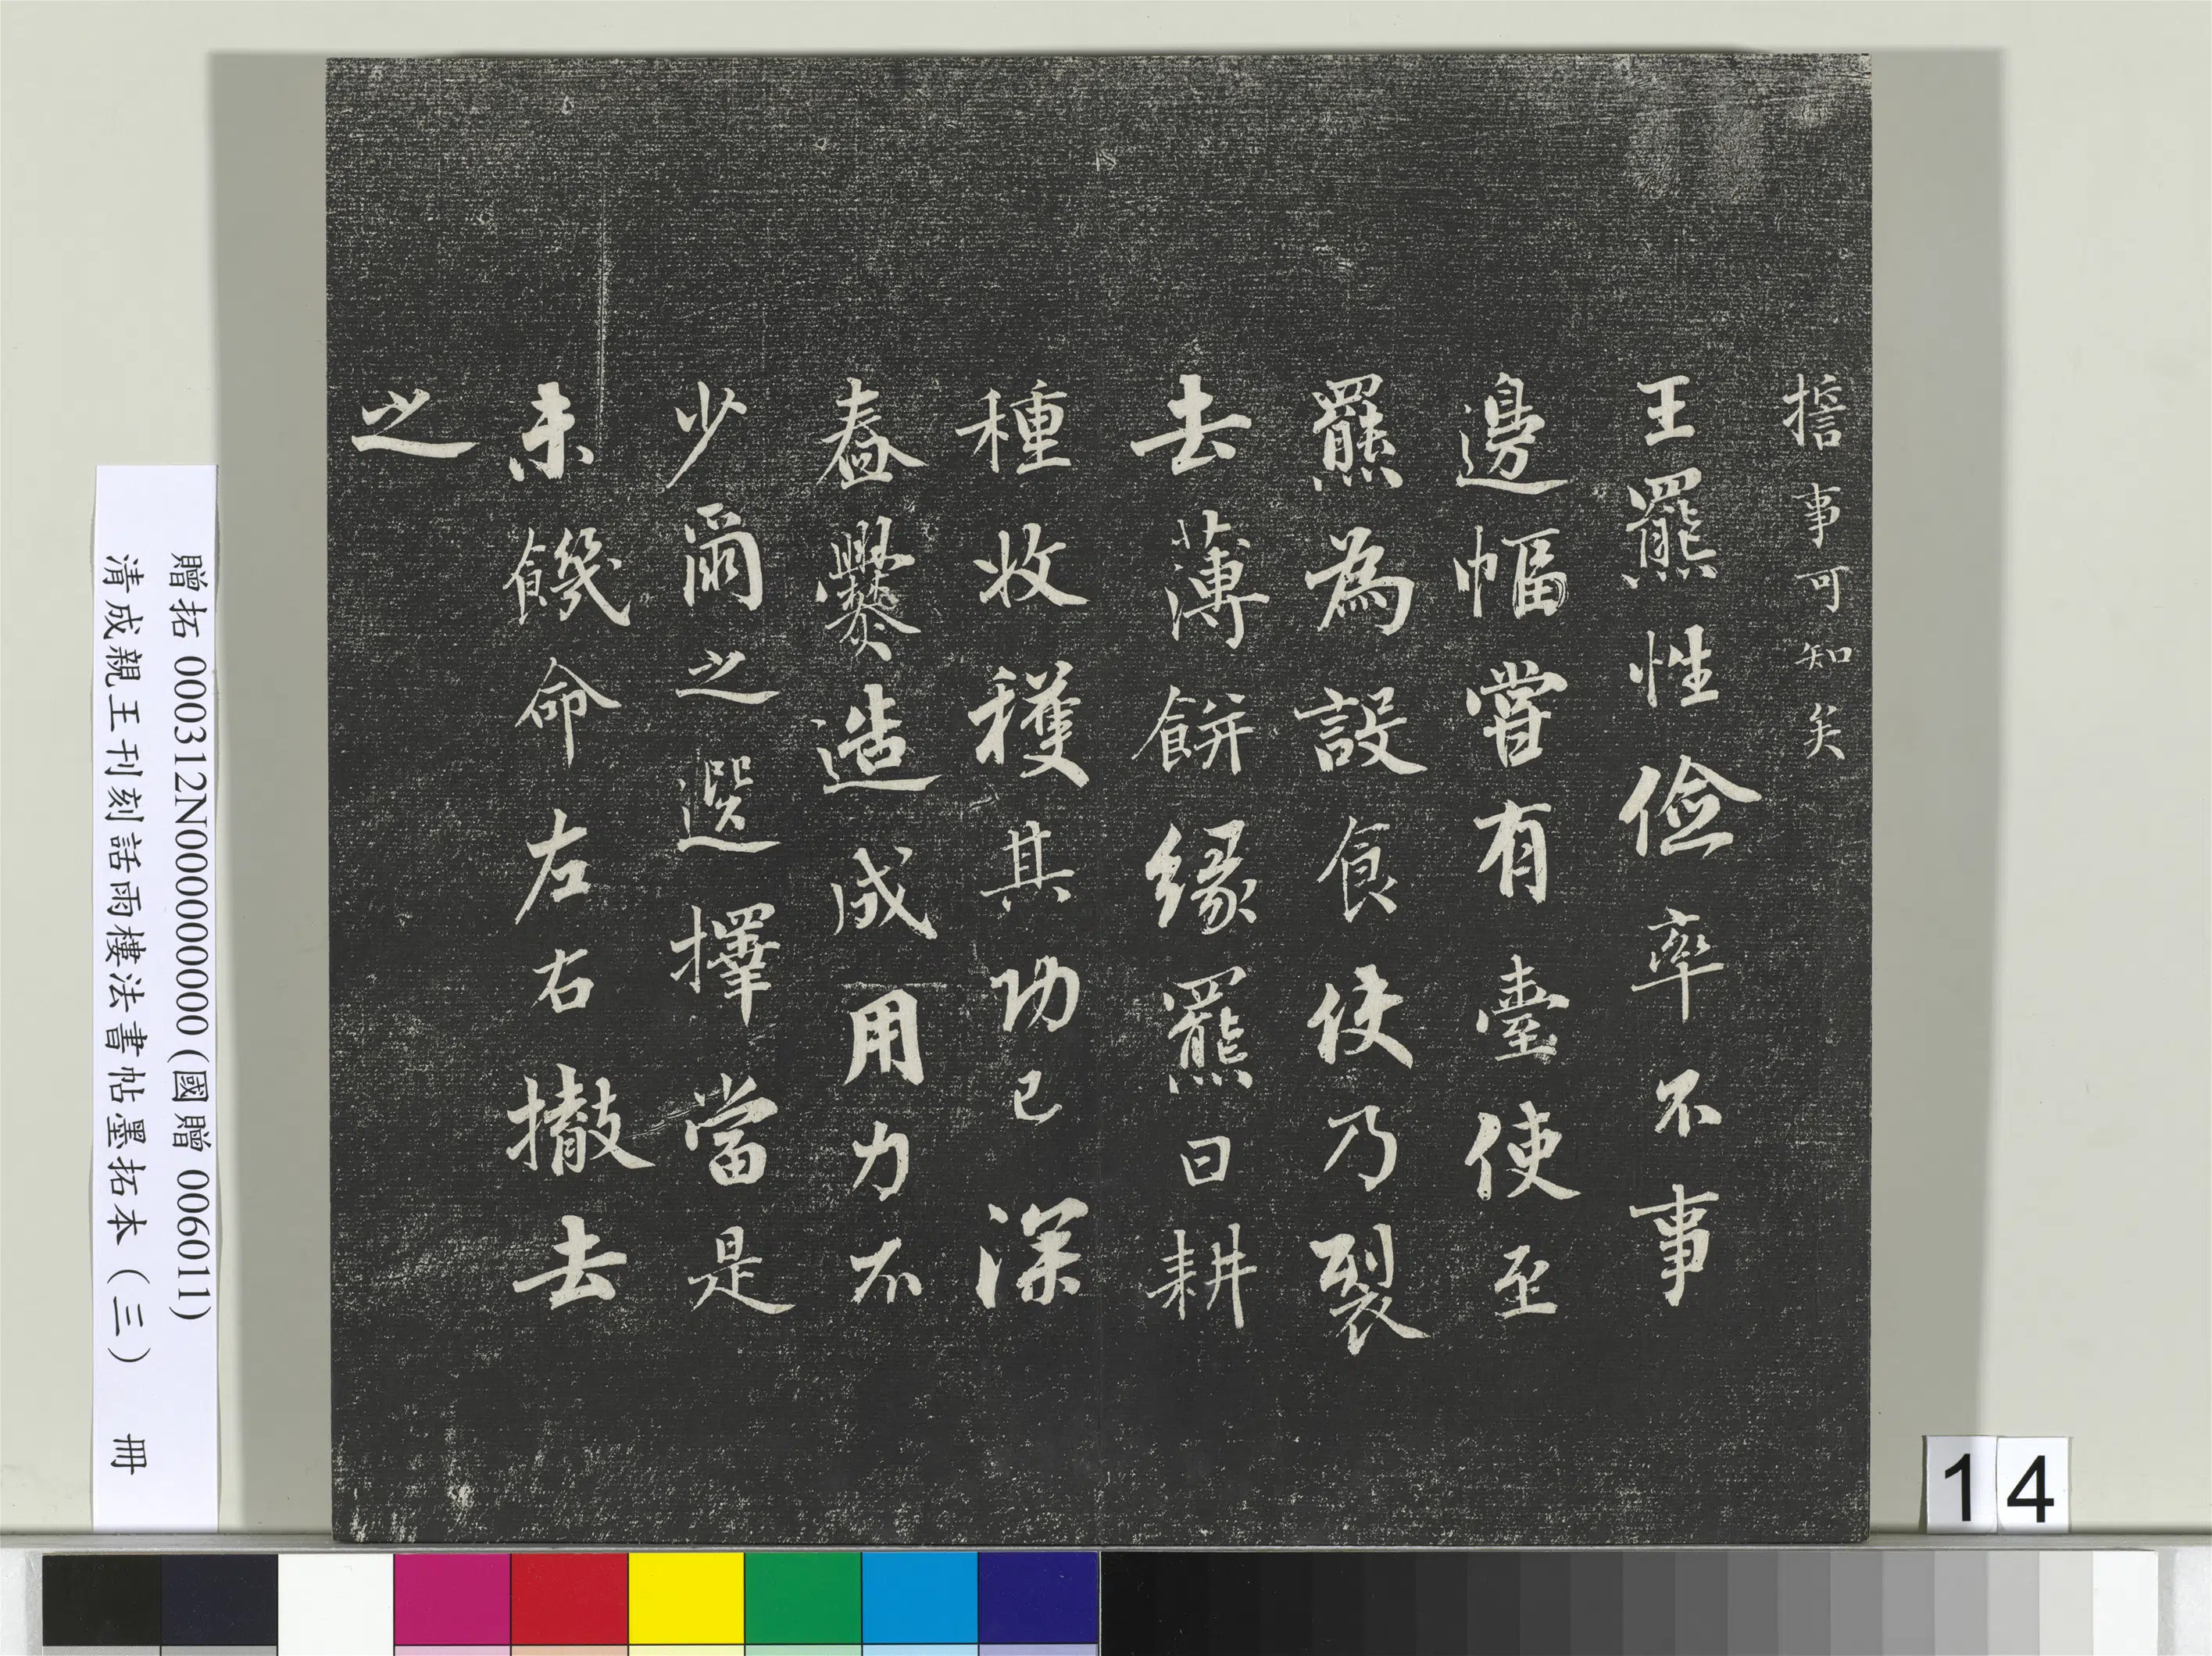 擔事可知矣
王羆性儉率不事
邊幅嘗有臺使至
羆為設食使乃裂
去薄餅緣羆曰耕
種收穫其功已深
舂爨造成用力不
少爾之選擇當是
未饑命左右撤去
之
贈拓 000312N000000000 (國贈 006011)
清成親王刊刻話雨樓法書帖墨拓本（三） 冊
14